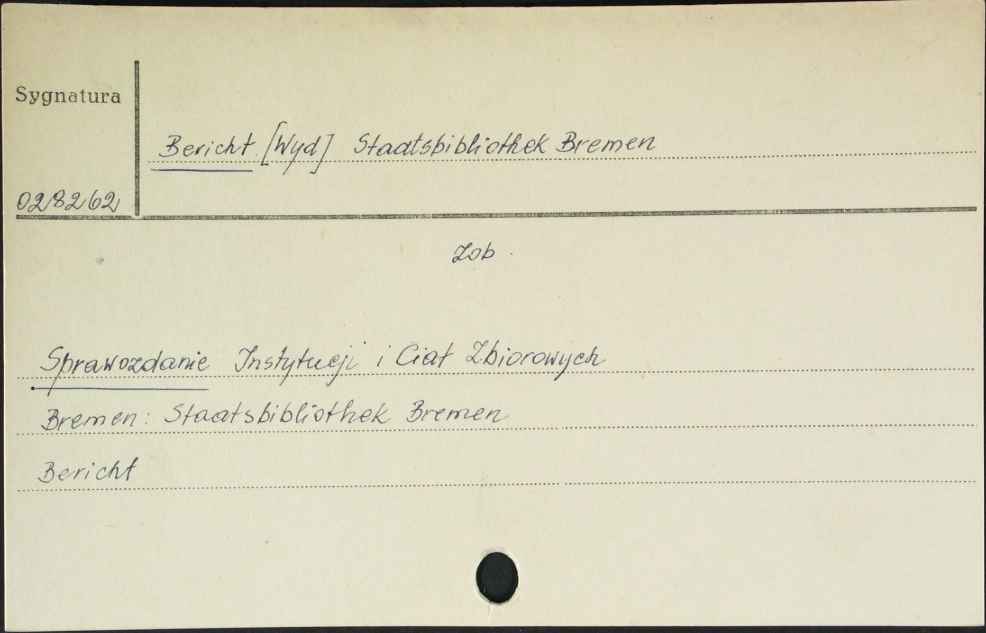 Sygnatura
Bericht [Wyd] Staatsbibliothek Bremen
028262
Zob.
Sprawozdanie Instytucji i Ciał Zbiorowych
Bremen: Staatsbibliothek Bremen
Bericht